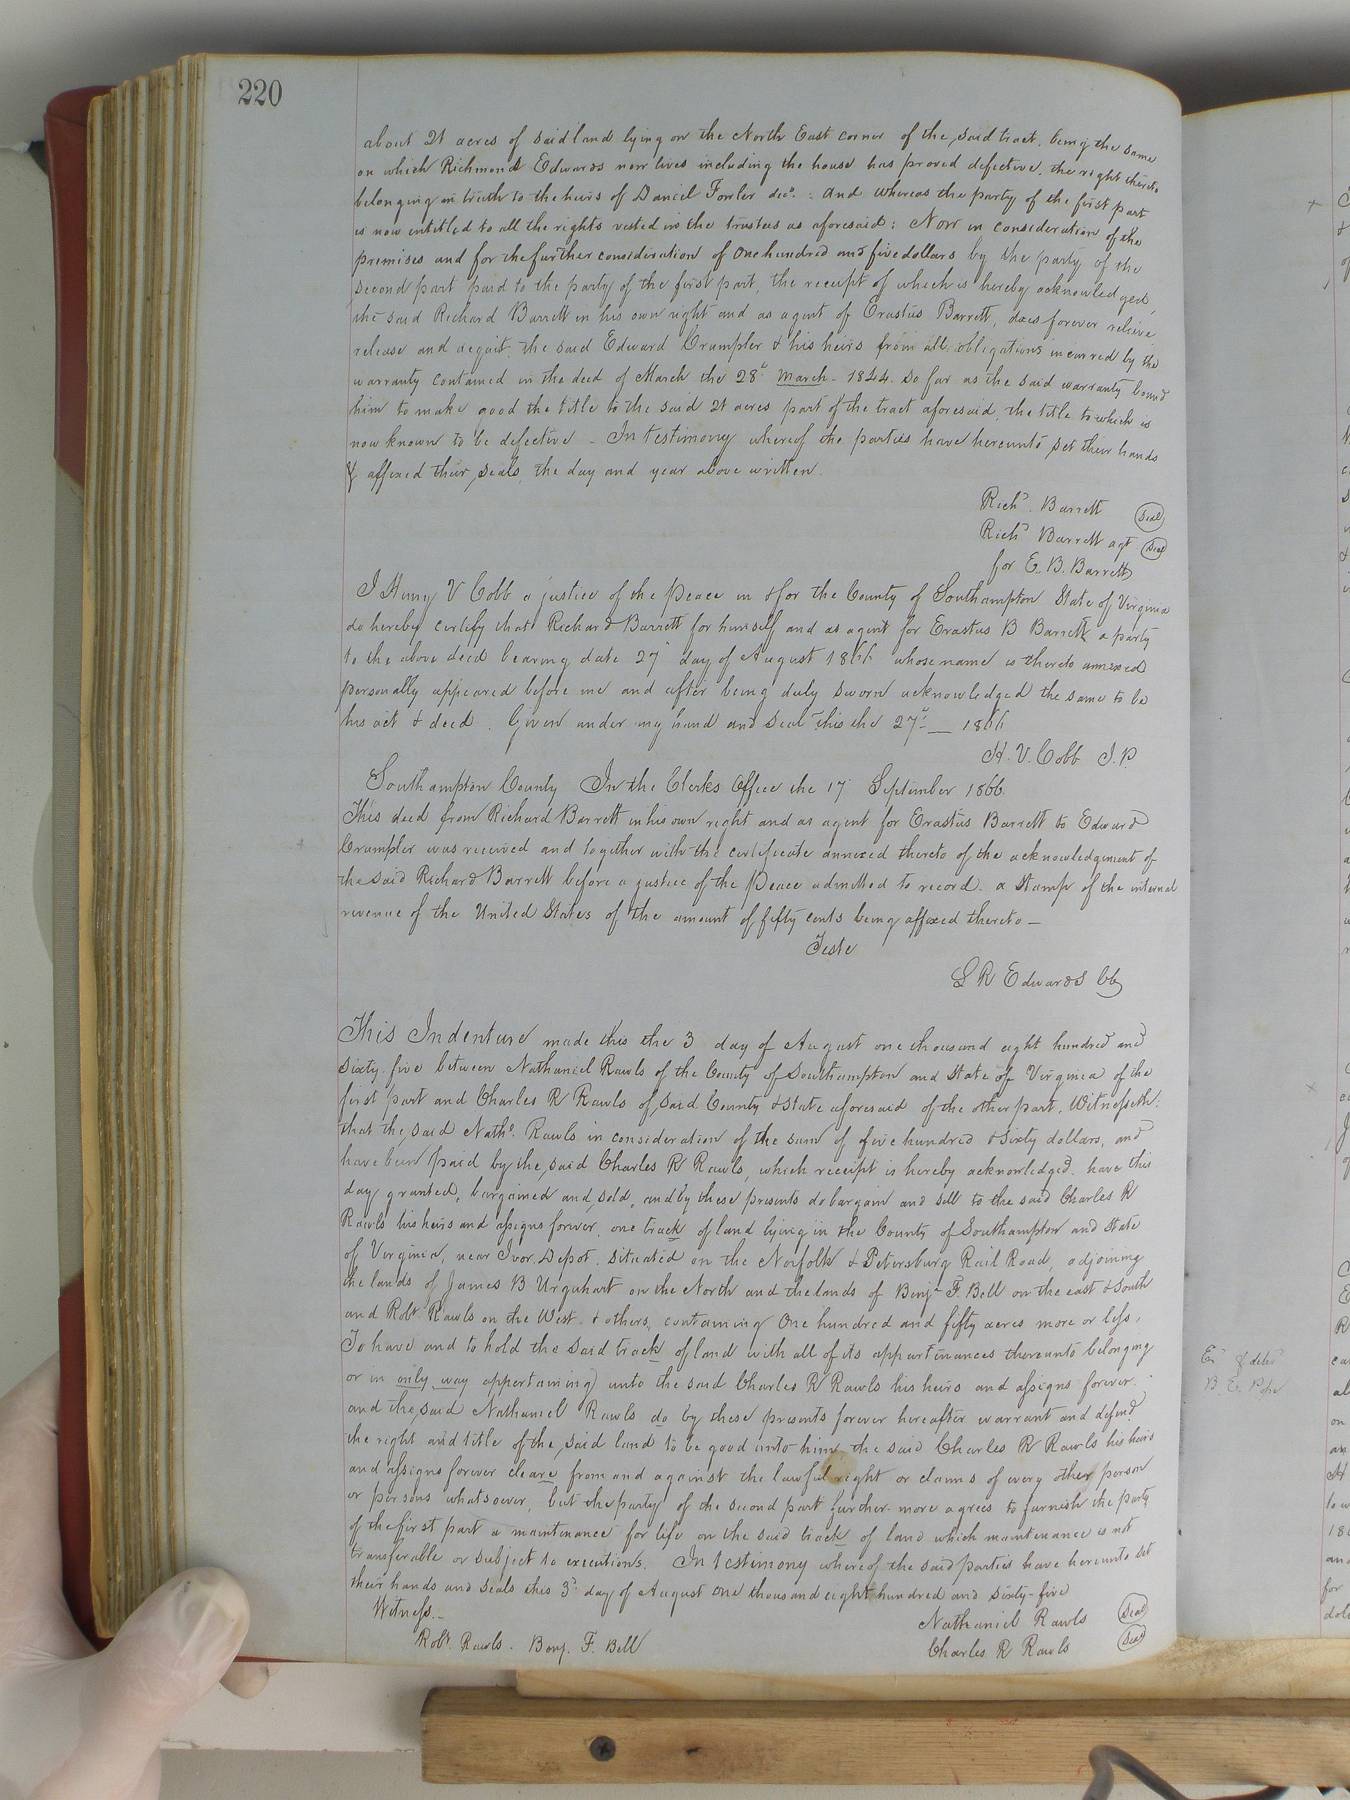 220
about 21 acres of said land lying on the North East corner of the said tract, being the same
on which Richmond Edwards now lives including the house has proved defective, the right thereto
belonging in truth to the heirs of Daniel Fowler decd. : And whereas the party of the first part
is now entitled to all the rights vested in the trustees as aforesaid: Now in consideration of the
premises and for the further consideration of One hundred and five dollars by the party of the
second part paid to the party of the first part, the receipt of which is hereby acknowledged,
the said Richard Barrett in his own right and as agent of Erastus Barrett, does forever relieve
release and acquit, the said Edward Crumpler & his heirs from all obligations incurred by the
warranty contained in the deed of March the 28th March - 1844. so far as the said warranty bound
him to make good the title to the said 21 acres part of the tract aforesaid, the title to which is
now known to be defective - In testimony whereof the parties have hereunto set their hands
& affixed their seals, the day and year above written.
Richd. Barrett Seal
Richd Barrett agt Seal
for E. B. Barrett
I Henry V Cobb a justice of the Peace in & for the County of Southampton State of Virginia
do hereby certify that Richard Barrett for himself and as agent for Erastus B Barrett a party
to the above deed bearing date 27 day of August 1866 whose name is thereto annexed
personally appeared before me and after being duly sworn acknowledged the same to be
his act & deed. Given under my hand and seal this the 27th __ 1866
H. V. Cobb J. P.
Southampton County In the Clerks Office the 17 September 1866.
This deed from Richard Barrett in his own right and as agent for Erastus Barrett to Edward
Crumpler was received and together with the certificate annexed thereto of the acknowledgement of
the said Richard Barrett before a justice of the Peace admitted to record. a Stamp of the internal
revenue of the United States of the amount of fifty cents being affixed thereto -
Teste
L R Edwards Clk
This Indenture made this the 3 day of August one thousand eight hundred and
Sixty five between Nathaniel Rawls of the County of Southampton and State of Virginia of the
first part and Charles R Rawls of said County & State aforesaid of the other part, Witnesseth:
that the said Nathl. Rawls in consideration of the sum of five hundred & sixty dollars, and
have been paid by the said Charles R Rawls, which receipt is hereby acknowledged. have this
day granted, bargained and sold, and by these presents do bargain and sell to the said Charles R
Rawls his heirs and assigns forever, one track of land lying in the County of Southampton and State
of Virginia, near Ivor Depot, situated on the Norfolk & Petersburg Rail Road, adjoining
the lands of James B Urquhart on the North and the lands of Benj. F. Bell on the east & South
and Robt. Rawls on the West. & others, containing One hundred and fifty acres more or less,
To have and to hold the said track of land with all of its appurtinances thereunto belonging
or in only way appertaining unto the said Charles R Rawls his heirs and assigns forever.
and the said Nathaniel Rawls do by these presents forever hereafter warrant and defend
the right and title of the said land to be good unto him the said Charles R Rawls his heirs
and assigns forever cleare from and against the lawful right or claims of every other person
or persons whatsoever, but the party of the second part further-more agrees to furnish the party
of the first part a maintenance for life on the said track of land which maintenance is not
transferable or subject to executions. In testimony whereof the said parties have hereunto set
their hands and seals this 3d day of August one thousand eight hundred and sixty-five
Witness.
Nathaniel Rawls Seal
Robt. Rawls. Benj. F. Bell
Charles R Rawls Seal